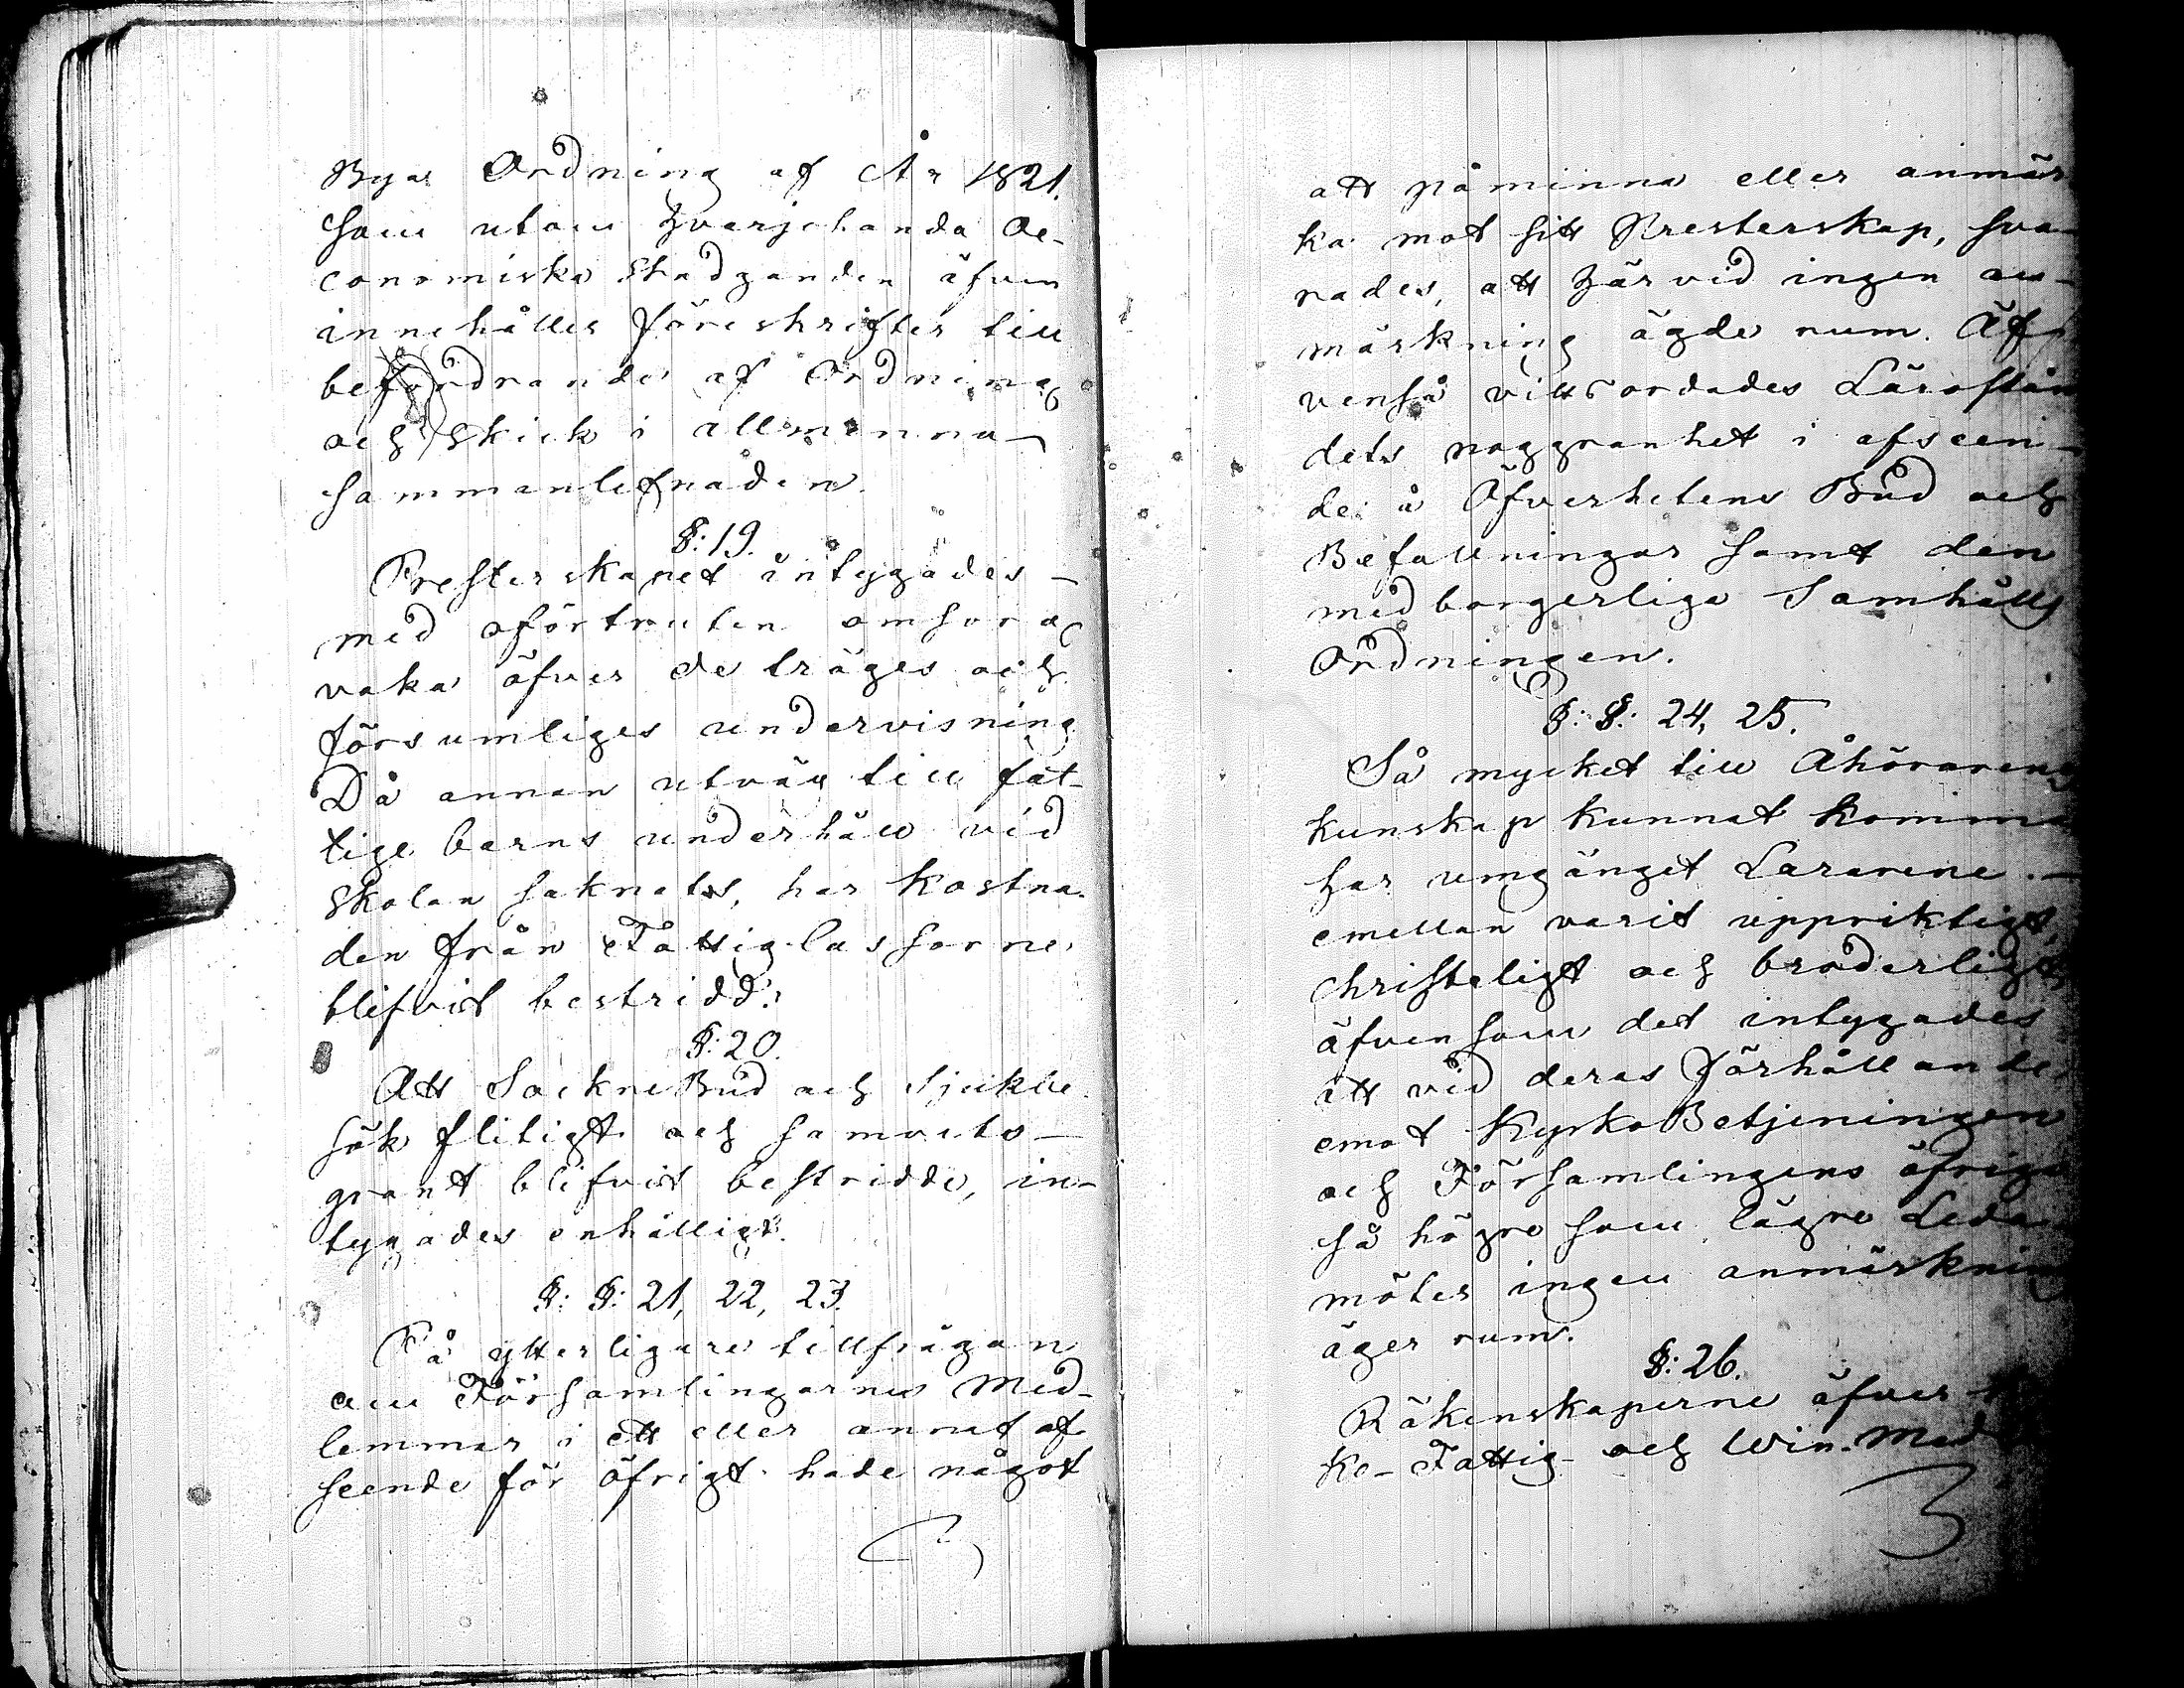 Bya Ordning af År 1821.
som utom hvarjehanda Oe-
conomiska Stadganden äfven
innehåller föreskrifter till
befordrande af Ordning
och skick i allmänna
sammanlefnaden.
§: 19.
Presterskapet intygades
med oförtruten omsorg
vaka öfver de tröges och
försumliges undervisning.
Då annan utväg till fat-
tige barns underhåll vid
Skolan saknats, har kostna-
den från Fattigcassorne
blifvit bestridd.
§: 20.
Att SockneBud och Sjukbe-
sök flitigt och samvets-
grant blifvit bestridde, in-
tygades enhälligt.
§: §: 21, 22, 23.
På ytterligare tillfrågan
om Församlingarnes Med-
lemmar i ett eller annat af-
seende för öfrigt hade något
att påminna eller anmär-
ka mot sitt Presterskap, sva-
rades, att härvid ingen an-
märkning ägde rum. Äf-
venså vittsordades Lärostån-
dets noggranhet i afseen-
de å Öfverhetens Bud och
Befallningar samt den
medborgerliga Samhälls
Ordningen.
§: §: 24, 25.
Så mycket till Åhörarens
kunskap kunnat komma
har umgänget Lärarene
emellan varit uppriktigt,
christeligt och broderligt,
äfvensom det intygades
att vid deras förhållande
emot KyrkoBetjeningen
och Församlingens öfriga
så högre som lägre Leda-
möter ingen anmärkning
äger rum.
§: 26.
Räkenskaperne öfver
ko- Fattig- och Vin-Med